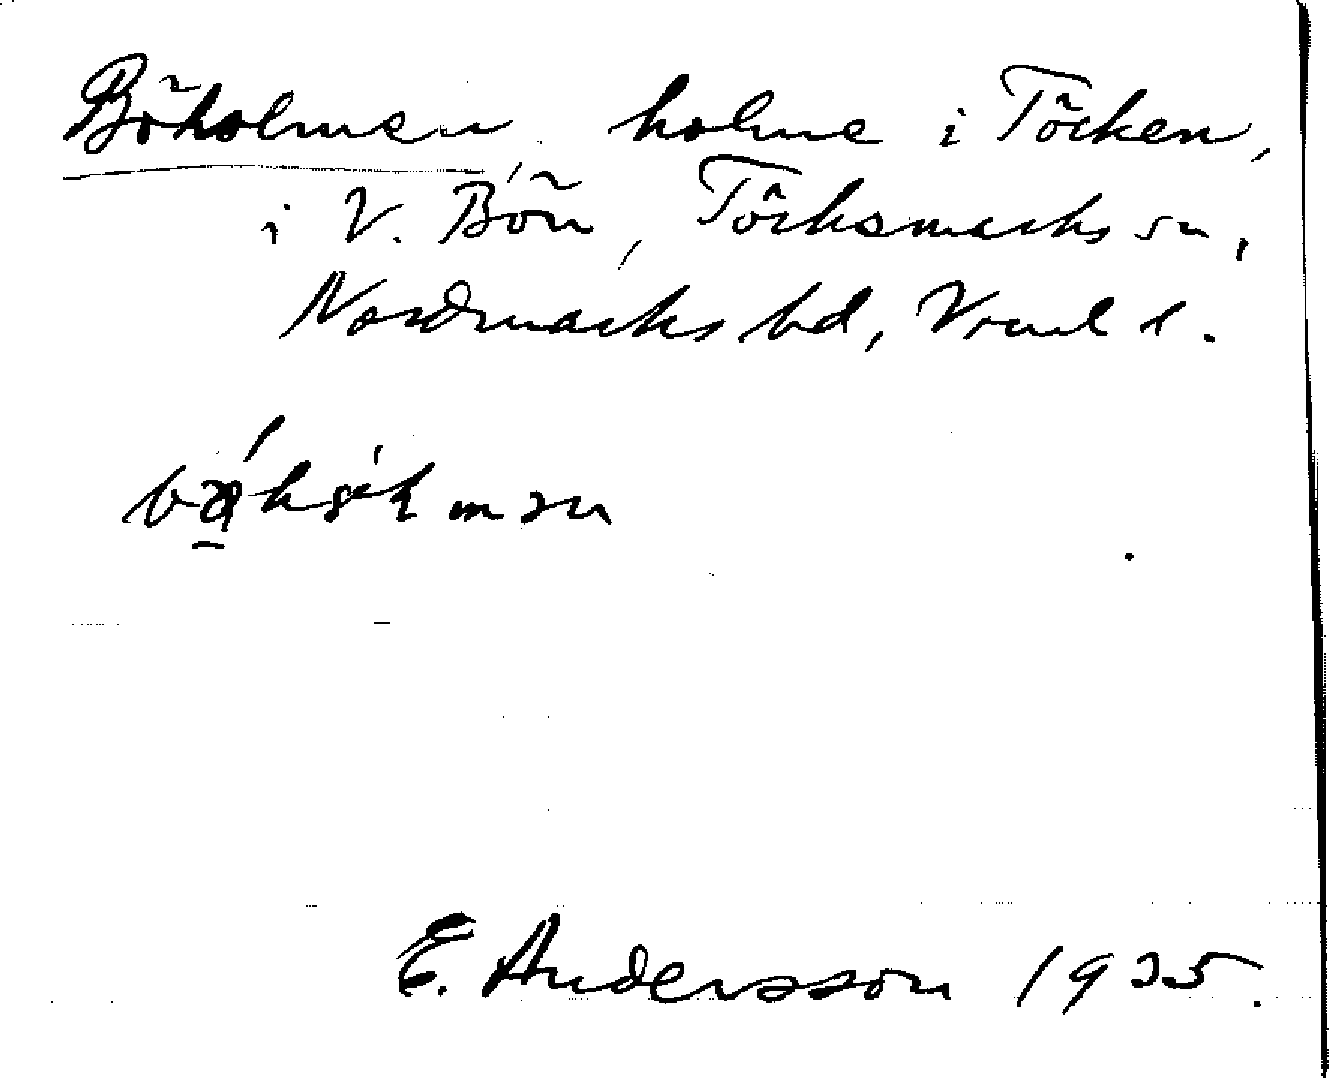 Böholmen, holme i Töcken,
i V. Bön, Töcksmarks sn,
Nordmarks hd, Vrml l.
E. Andersson 1935.